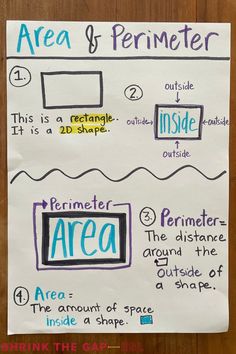 Area & Perimeter
1.
This is a rectangle.
It is a 2D shape.
2.
outside
outside
inside
outside
outside
Perimeter
Area
3. Perimeter=
The distance
around the
outside of
a shape.
4. Area=
The amount of space
inside a shape.
SHRINK THE GAP